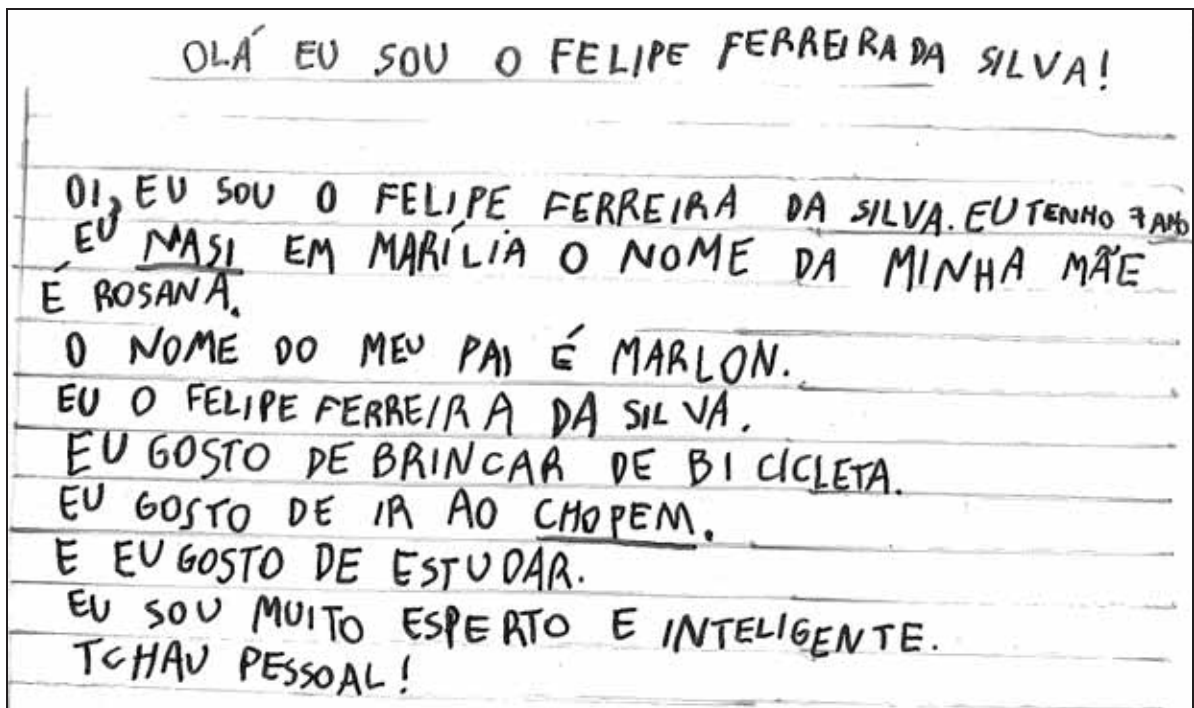 OLÁ EU SOU O FELIPE FERREIRA DA SILVA!
OI, EU SOU O FELIPE FERREIRA DA SILVA. EU TENHO 7 ANO
EU NASI EM MARÍLIA O NOME DA MINHA MÃE
É ROSANA.
O NOME DO MEU PAI É MARLON.
EU O FELIPE FERREIRA DA SILVA.
EU GOSTO DE BRINCAR DE BICICLETA.
EU GOSTO DE IR AO CHOPEM.
E EU GOSTO DE ESTUDAR.
EU SOU MUITO ESPERTO E INTELIGENTE.
TCHAU PESSOAL!